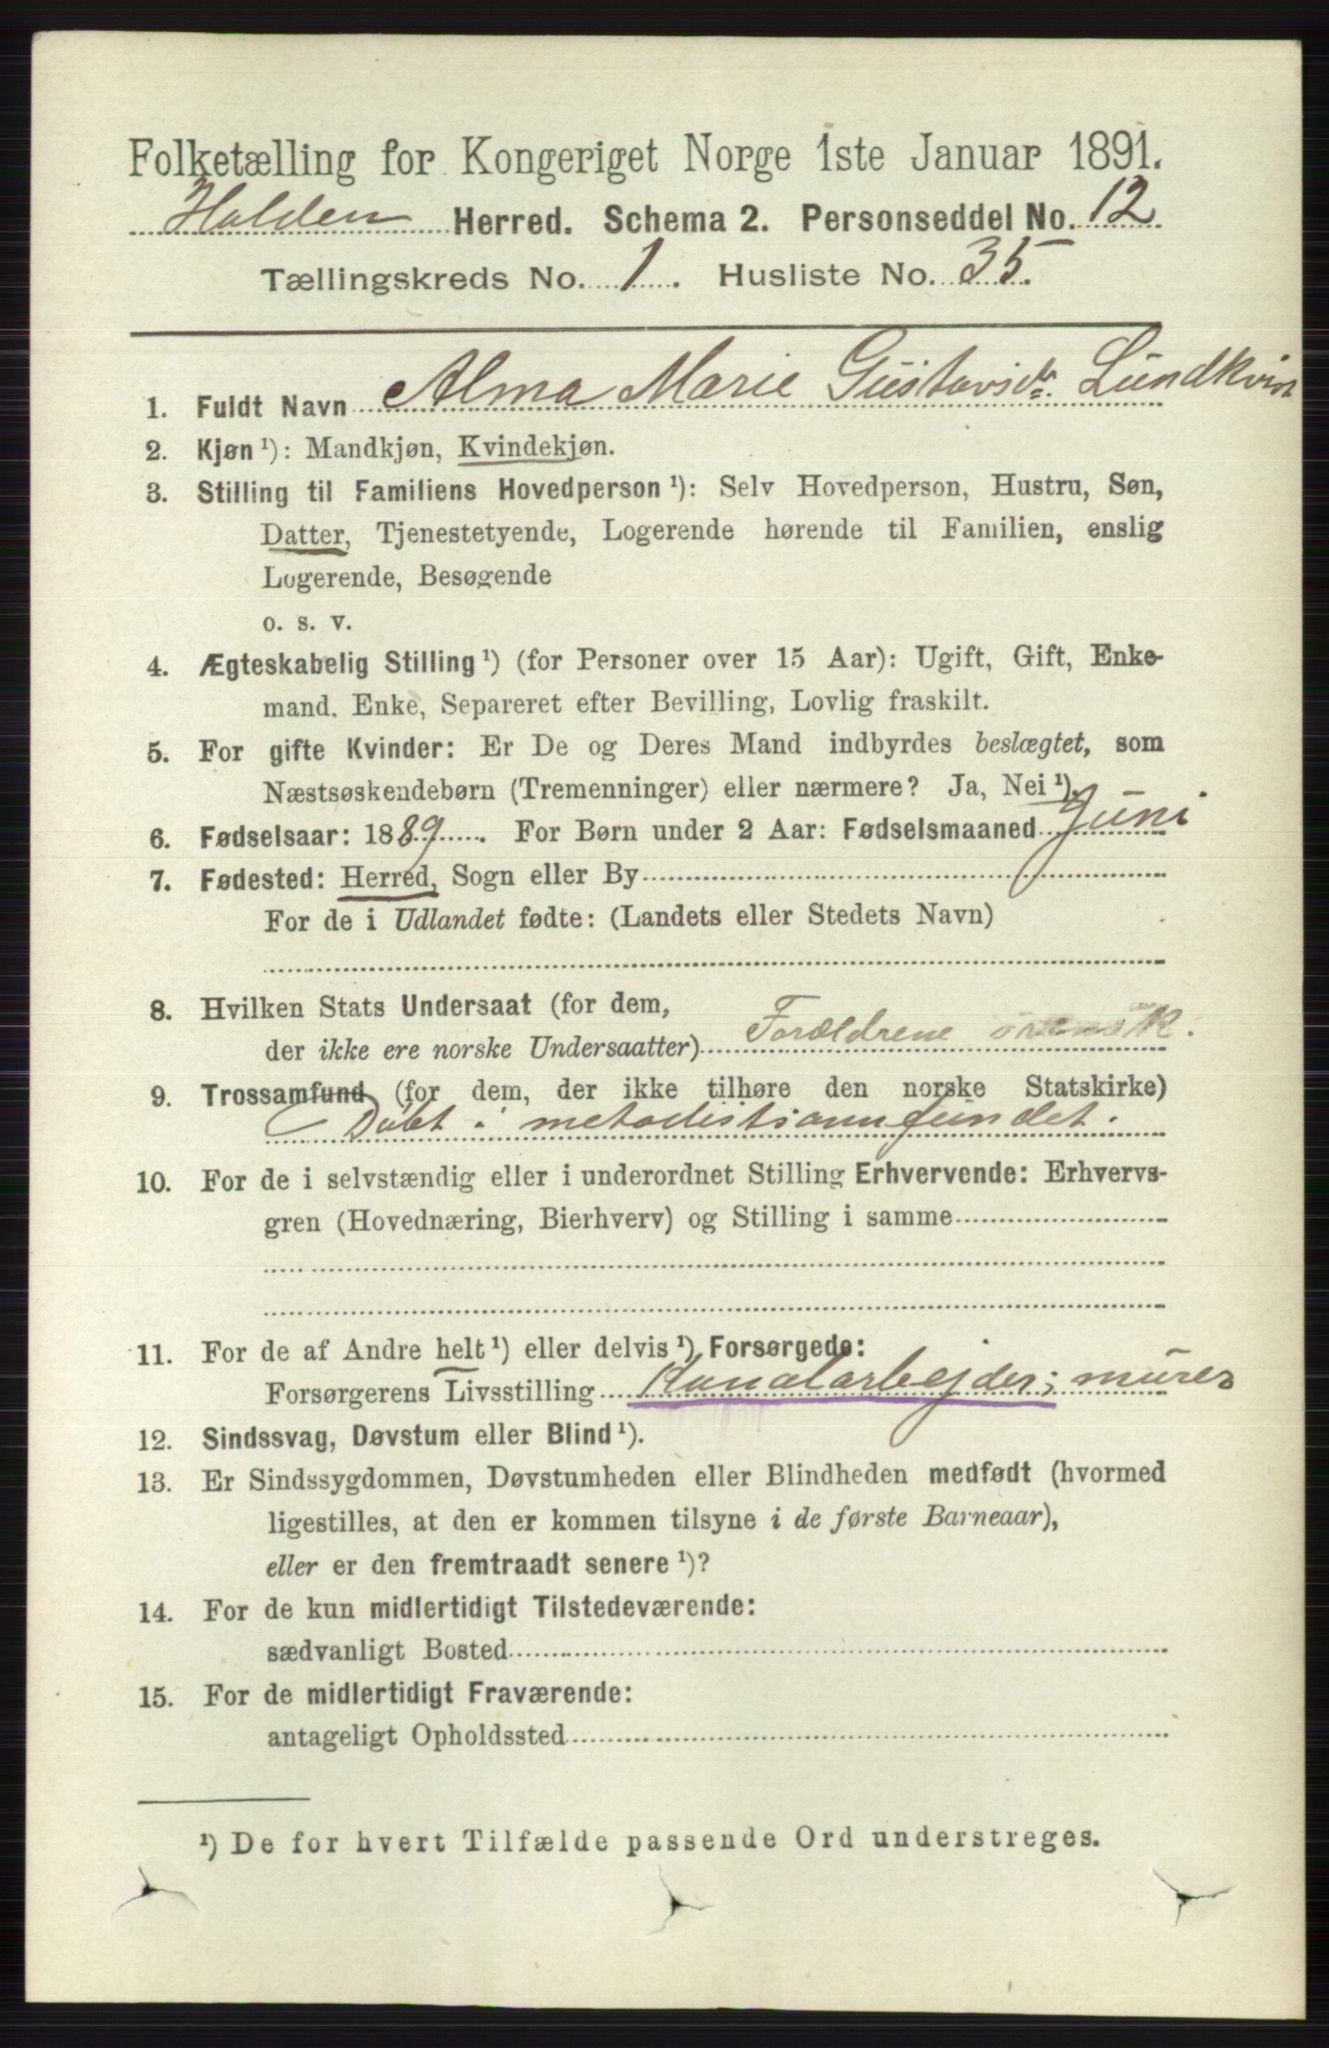 Folketælling for Kongeriget Norge 1ste Januar 1891.
Holden Herred. Schema 2. Personseddel No. 12
Tællingskreds No. 1. Husliste No. 35.
1. Fuldt Navn Alma Marie Gustavsdr. Lundkvist
2. Kjøn ¹): Mandkjøn, Kvindekjøn.
3. Stilling til Familiens Hovedperson ¹): Selv Hovedperson, Hustru, Søn,
Datter, Tjenestetyende, Logerende hørende til Familien, enslig
Logerende, Besøgende
o. s. v.
4. Ægteskabelig Stilling ¹) (for Personer over 15 Aar): Ugift, Gift, Enke-
mand, Enke, Separeret efter Bevilling, Lovlig fraskilt.
5. For gifte Kvinder: Er De og Deres Mand indbyrdes beslægtet, som
Næstsøskendebørn (Tremenninger) eller nærmere? Ja, Nei ¹).
6. Fødselsaar: 1889. For Børn under 2 Aar: Fødselsmaaned Juni
7. Fødested: Herred, Sogn eller By
For de i Udlandet fødte: (Landets eller Stedets Navn)
8. Hvilken Stats Undersaat (for dem,
der ikke ere norske Undersaatter) Forældrene svensk.
9. Trossamfund (for dem, der ikke tilhøre den norske Statskirke)
Døbt i metodistsamfundet.
10. For de i selvstændig eller i underordnet Stilling Erhvervende: Erhvervs-
gren (Hovednæring, Bierhverv) og Stilling i samme
11. For de af Andre helt ¹) eller delvis ¹) Forsørgede:
Forsørgerens Livsstilling Kanalarbejder; murer
12. Sindssvag, Døvstum eller Blind ¹).
13. Er Sindssygdommen, Døvstumheden eller Blindheden medfødt (hvormed
ligestilles, at den er kommen tilsyne i de første Barneaar),
eller er den fremtraadt senere ¹)?
14. For de kun midlertidigt Tilstedeværende:
sædvanligt Bosted
15. For de midlertidigt Fraværende:
antageligt Opholdssted
¹) De for hvert Tilfælde passende Ord understreges.